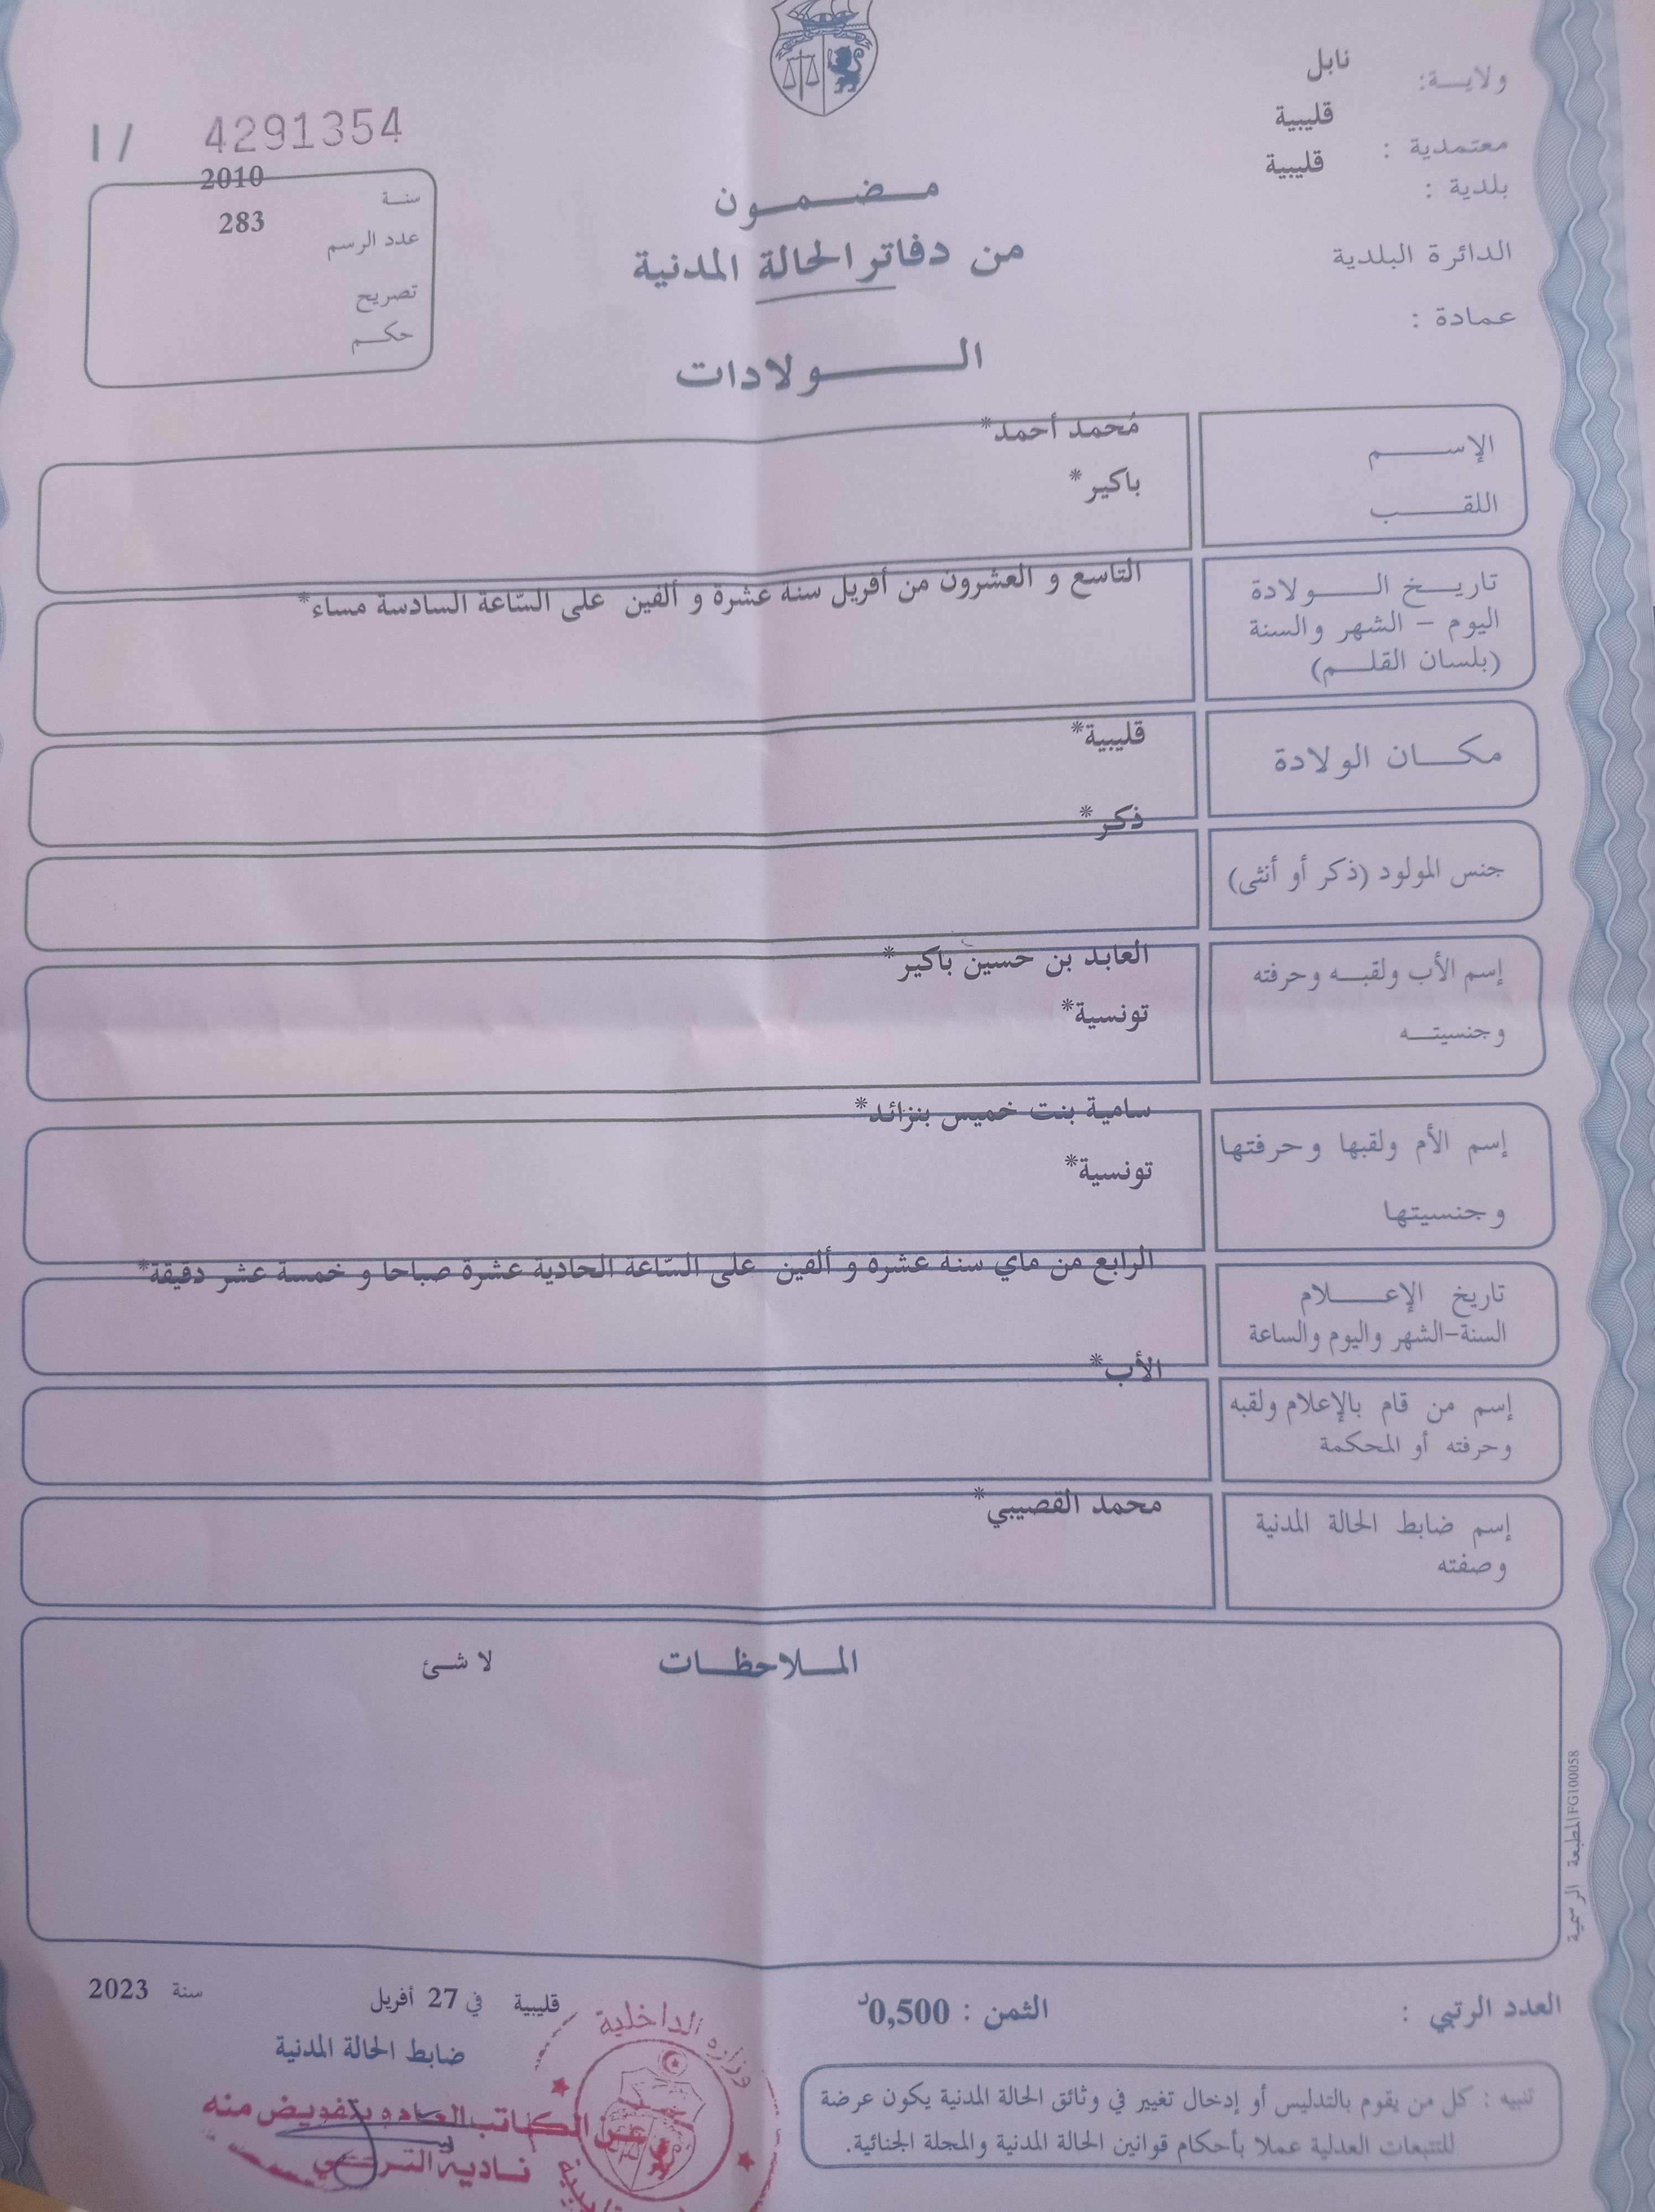 ولاية: نابل
معتمدية : قليبية
بلدية : قليبية
الدائرة البلدية
عمادة :
4291354 /I
سنة 2010
عدد الرسم 283
تصريح
حكم
مضمون
من دفاتر الحالة المدنية
الولادات
الإسم مُحمد أحمد*
اللقب باكير*
تاريخ الولادة
اليوم – الشهر والسنة
(بلسان القلم)
التاسع و العشرون من أفريل سنة عشرة و ألفين على السّاعة السادسة مساء*
مكان الولادة قليبية*
جنس المولود (ذكر أو أنثى) ذكر*
إسم الأب ولقبه وحرفته العابد بن حسين باكير*
وجنسيته تونسية*
إسم الأم ولقبها وحرفتها سامية بنت خميس بنزائد*
وجنسيتها تونسية*
تاريخ الإعلام
السنة-الشهر واليوم والساعة
الرابع من ماي سنة عشرة و ألفين على السّاعة الحادية عشرة صباحا و خمسة عشر دقيقة*
إسم من قام بالإعلام ولقبه
وحرفته أو المحكمة
الأب*
إسم ضابط الحالة المدنية
وصفته
محمد القصيبي*
الملاحظات لا شئ
المطبعة الرسمية FG100058
العدد الرتبي :
الثمن : 0,500د
قليبية في 27 أفريل سنة 2023
ضابط الحالة المدنية
وزارة الداخلية
عن الكاتب العام وبتفويض منه
نادية التركي
تنبيه : كل من يقوم بالتدليس أو إدخال تغيير في وثائق الحالة المدنية يكون عرضة
للتتبعات العدلية عملا بأحكام قوانين الحالة المدنية والمجلة الجنائية.